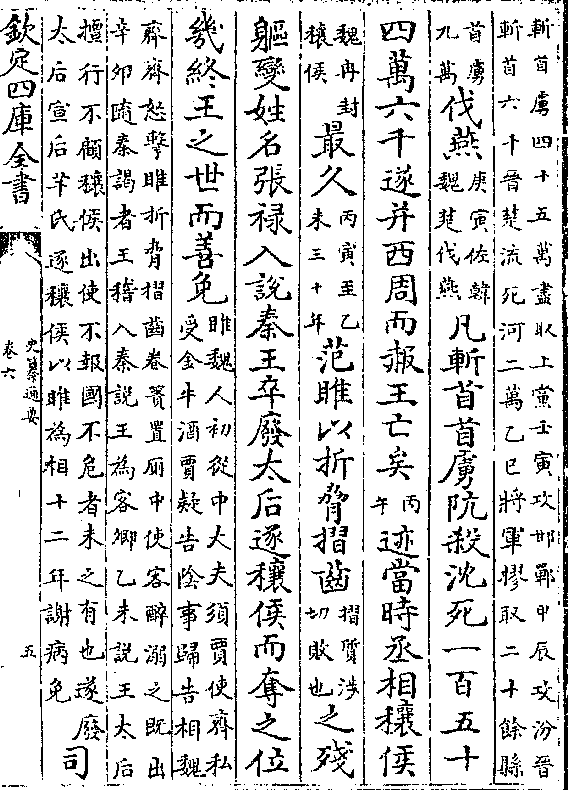 斬首虜四十五萬盡取上黨壬寅攻邯鄲甲辰攻汾晉
斬首六千晉楚流死河二萬乙巳將軍摎取二十餘縣
首虜九萬伐燕庚寅佐韓魏楚伐燕凡斬首首虜阬殺沈死一百五十
四萬六千遂并西周而赧王亡矣丙午迹當時丞相穰侯
魏冉封穰侯最久丙寅至乙未三十年范雎以折脅摺齒摺質涉切敗也之殘
軀變姓名張祿入說秦王卒廢太后逐穰侯而奪之位
幾終王之世而善免雎魏人初從中大夫須賈使齊私受金牛酒賈疑告陰事歸告相魏
齊齊怒擊雎折脅摺齒卷簀置厠中使客醉溺之既出
辛卯隨秦謁者王稽入秦說王為客卿乙未說王太后
擅行不顧穰侯出使不報國不危者未之有也遂廢
太后宣后羋氏逐穰侯以雎為相十二年謝病免司
欽定四庫全書
史纂通要
卷六
五